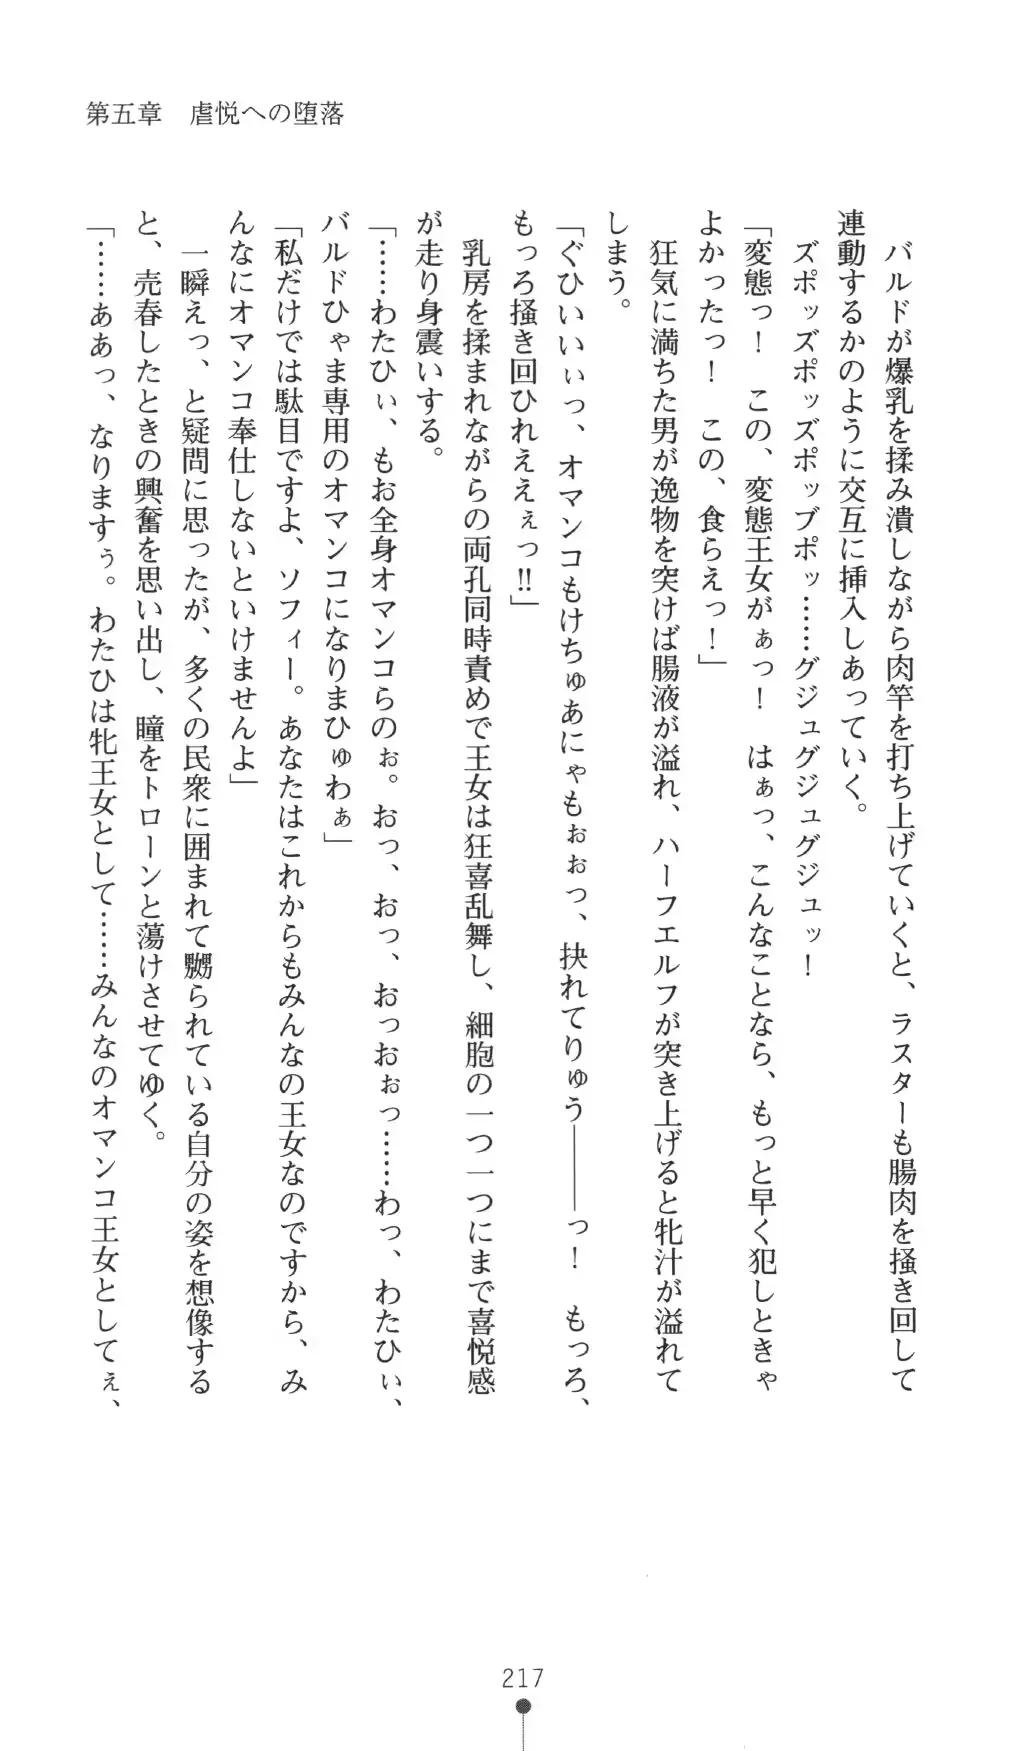 第五章　虐悦への堕落
　バルドが爆乳を揉み潰しながら肉竿を打ち上げていくと、ラスターも腸肉を掻き回して
連動するかのように交互に挿入しあっていく。
　ズポッズポッズポッブポッ……グジュグジュグジュッ！
「変態っ！　この、変態王女がぁっ！　はぁっ、こんなことなら、もっと早く犯しときゃ
よかったっ！　この、食らえっ！」
　狂気に満ちた男が逸物を突けば腸液が溢れ、ハーフエルフが突き上げると牝汁が溢れて
しまう。
「ぐひいいぃっ、オマンコもけちゅあにゃもぉぉっ、抉れてりゅう――っ！　もっろ、
もっろ掻き回ひれええぇっ!!」
　乳房を揉まれながらの両孔同時責めで王女は狂喜乱舞し、細胞の一つ一つにまで喜悦感
が走り身震いする。
「……わたひぃ、もお全身オマンコらのぉ。おっ、おっ、おっおぉっ……わっ、わたひぃ、
バルドひゃま専用のオマンコになりまひゅわぁ」
「私だけでは駄目ですよ、ソフィー。あなたはこれからもみんなの王女なのですから、み
んなにオマンコ奉仕しないといけませんよ」
　一瞬えっ、と疑問に思ったが、多くの民衆に囲まれて嬲られている自分の姿を想像する
と、売春したときの興奮を思い出し、瞳をトローンと蕩けさせてゆく。
「……ああっ、なりますぅ。わたひは牝王女として……みんなのオマンコ王女としてぇ、
217